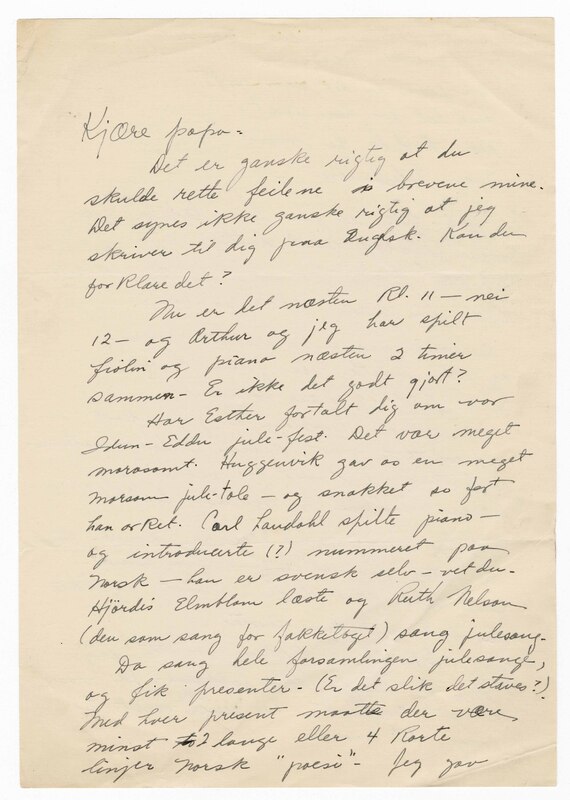 Kjære papa=
Det er ganske rigtig at du
skulde rette feilene i brevene mine.
Det synes ikke ganske rigtig at jeg
skriver til dig paa Englsk. Kan du
forklare det?
Nu er det næsten Kl. 11 — nei
12 — og Arthur og jeg har spilt
fiolin og piano næsten 2 timer
sammen - Er ikke det godt gjort?
Har Esther fortalt dig om vor
Idun-Edda jule-fest. Det var meget
morosomt. Huggenvik gav os en meget
morsom jule-tale — og snakket so fort
han orket. Carl Landahl spilte piano —
og introducerte (?) nummeret paa
Norsk — han er svensk selv — vet du -
Hjördis Elmblom læste og Ruth Nelson
(den som sang for fakkeltoget) sang julesang.
Da sang hele forsamlingen julesange,
og fik presenter - (Er det slik det staves?)
Med hver present maatte der være
minst 2 lange eller 4 korte
linjer norsk "poesi" - Jeg gav